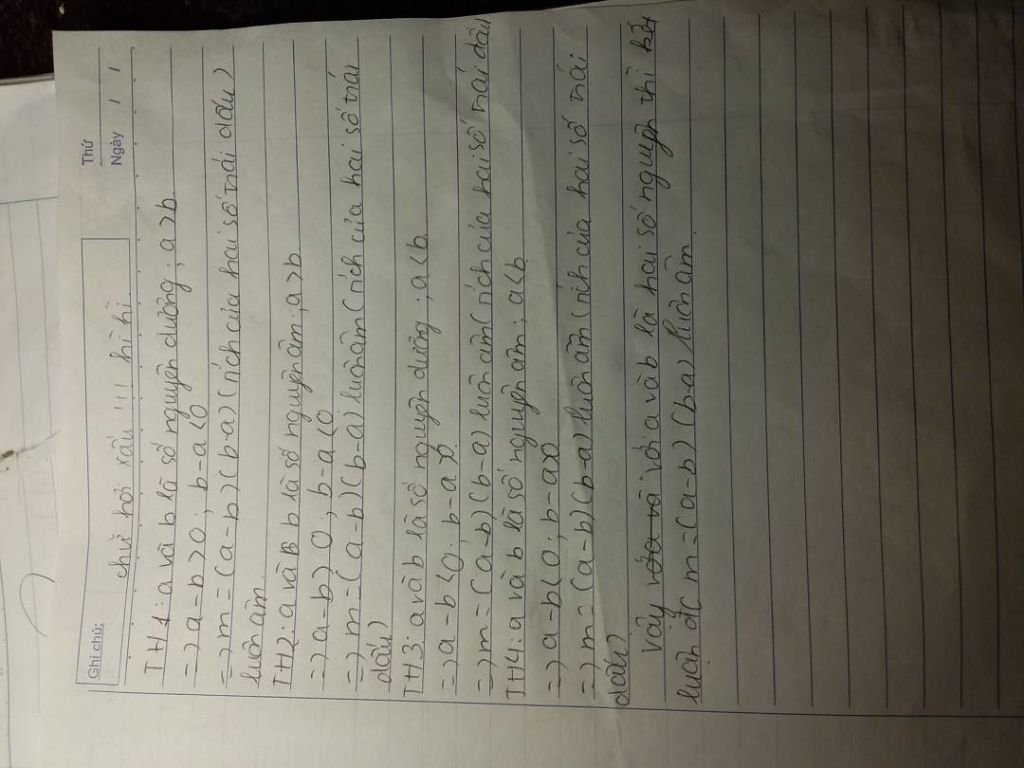 Ghi chú:
Thứ
Ngày / /
chữ hơi xấu !!! hì hì
TH1: a và b là số nguyên dương; a>b.
=> a-b>0; b-a<0
=> m=(a-b)(b-a) (tích của hai số trái dấu)
luôn âm.
TH2: a và b là số nguyên âm; a>b.
=> a-b>0; b-a<0
=> m=(a-b)(b-a) luôn âm (tích của hai số trái
dấu)
TH3: a và b là số nguyên dương; a<b.
=> a-b<0; b-a>0
=> m=(a-b)(b-a) luôn âm (tích của hai số trái dấu
TH4: a và b là số nguyên âm; a<b.
=> a-b<0; b-a>0
=> m=(a-b)(b-a) luôn âm (tích của hai số trái
dấu)
Vậy với a và b là hai số nguyên thì kết
luận đc m=(a-b)(b-a) luôn âm.